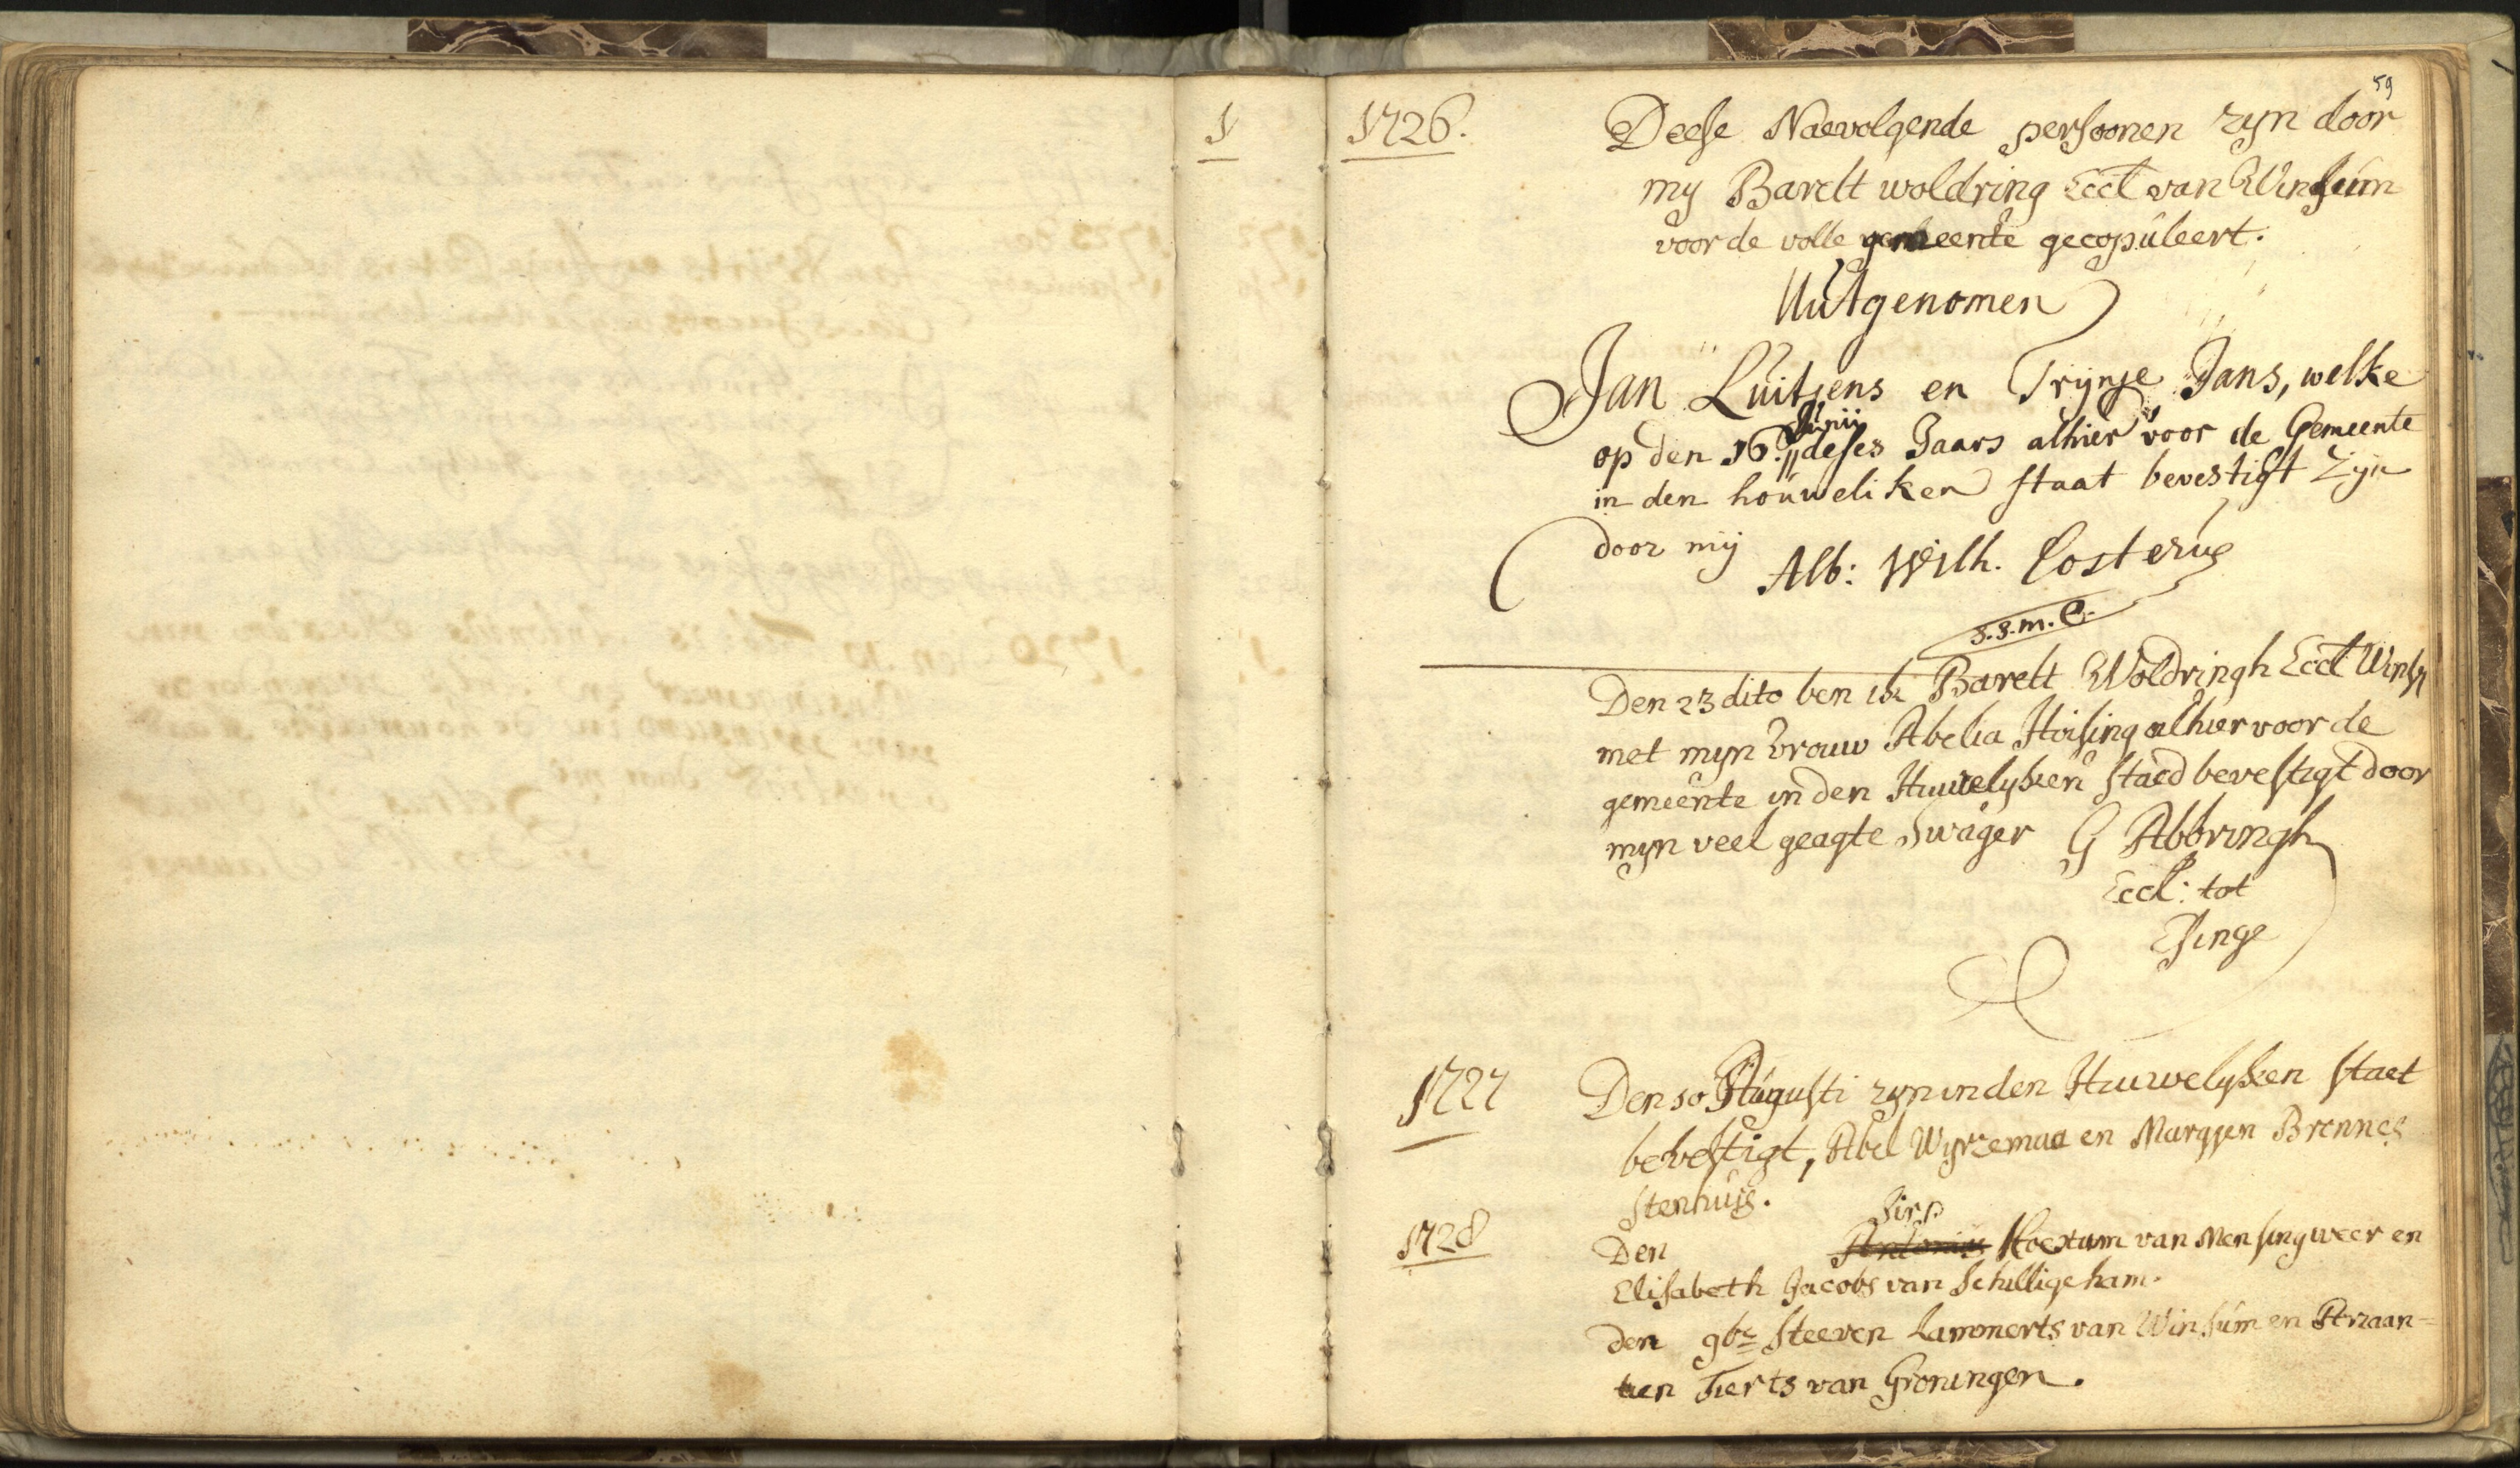 59
1
1726.
Deese Naevolgende persoonen zyn door
my Barelt woldring Eccl van Winsum
voor de volle gemeente gecopuleert.
Uutgenomen
Jan Luitjens en Trijnje Jans, welke
Junii
op den 16. deses Jaars alhier voor de Gemeente
in den houweliken staat bevestigt zijn
door mij Alb: Wilh. Costerus
s.s.m.C.
Den 23 dito ben ik Barelt Woldringh Eccl Wins
met myn vrouw Abelia Hoising alhier voor de
gemeente in den Huwelyken staed bevestigt door
myn veel geagte Swager G Abbringh
Eccl: tot
Esinge
1727
Den 10 Augusti zyn in den Huwelyken staet
bevestigt, Abel Wyrzemaa en Margjen Brennes
stenhuijs.
1728
Sirp
Den Antonius Hoexum van Mensingweer en
Elisabeth Jacobs van Schilligeham.
den 9br Steeven Lammerts van Winsum en Arzaan=
tien Tierts van Groningen.